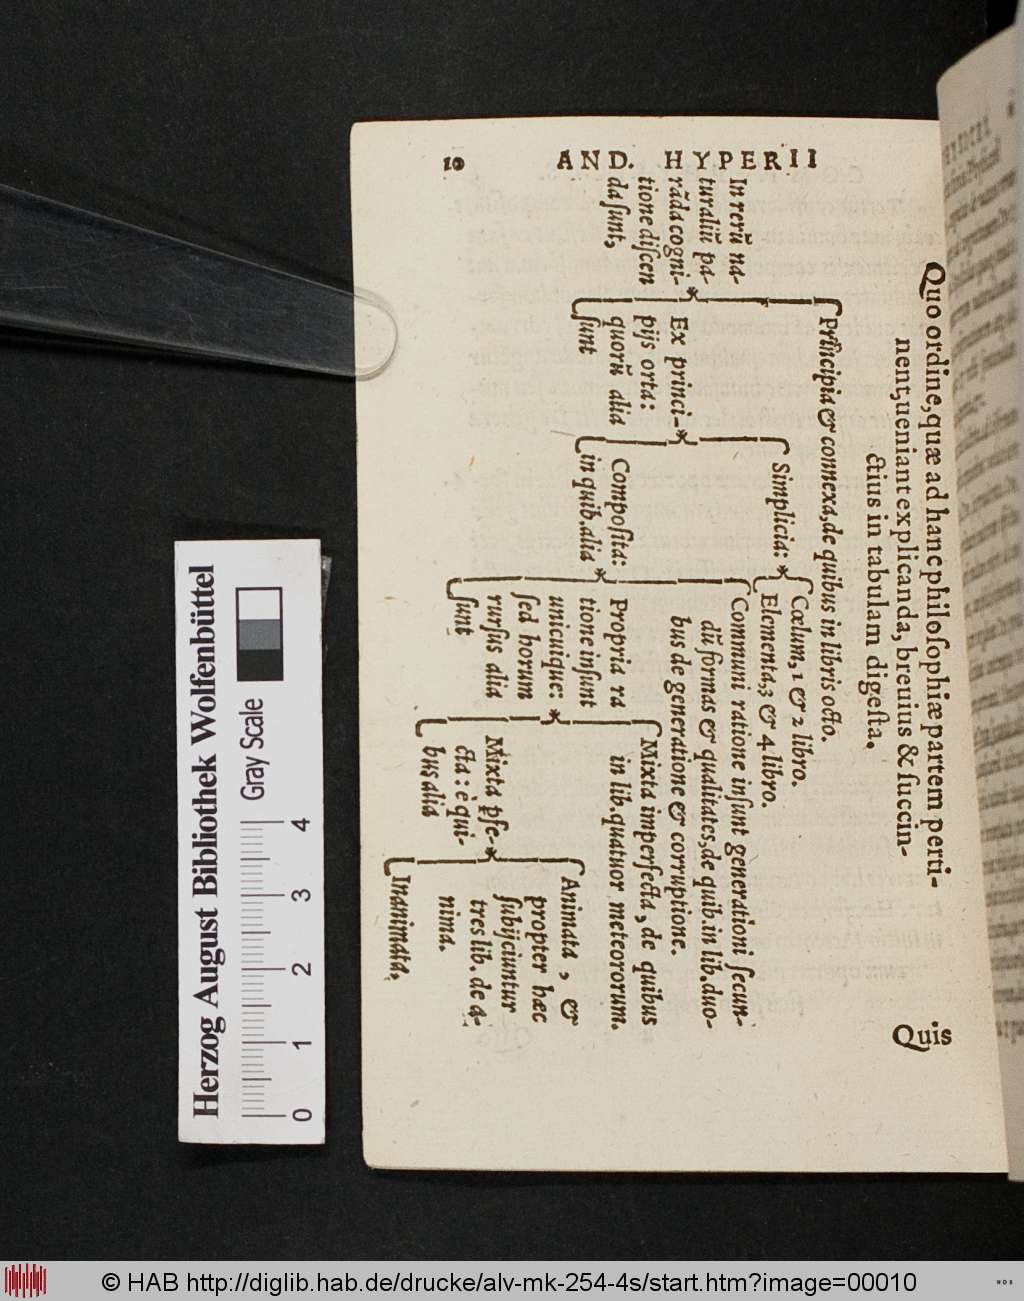 10 AND. HYPERII
Quo ordine, quæ ad hanc philoſophiæ partem perti-
nent, ueniant explicanda, breuius & ſuccin-
ctius in tabulam digeſta.
In rerū na-
turaliū pa-
rāda cogni-
tione diſcen
da ſunt,
Principia & connexa, de quibus in libris octo.
Ex princi-
pijs orta:
quorū alia
ſunt
Simplicia:
Cœlum, 1 & 2 libro.
Elementa, 3 & 4. libro.
Compoſita:
in quib. alia
Communi ratione inſunt generationi ſecun-
dū formas & qualitates, de quib. in lib. duo-
bus de generatione & corruptione.
Propria ra
tione inſunt
unicuique:
ſed horum
rurſus alia
ſunt
Mixta imperfecta, de quibus
in lib. quatuor meteororum.
Mixta pſe-
cta: è qui-
bus alia
Animata, &
propter hæc
ſubijciuntur
tres lib. de a-
nima.
Inanimata.
Quis
Herzog August Bibliothek Wolfenbüttel
Gray Scale
0 1 2 3 4
© HAB http://diglib.hab.de/drucke/alv-mk-254-4s/start.htm?image=00010